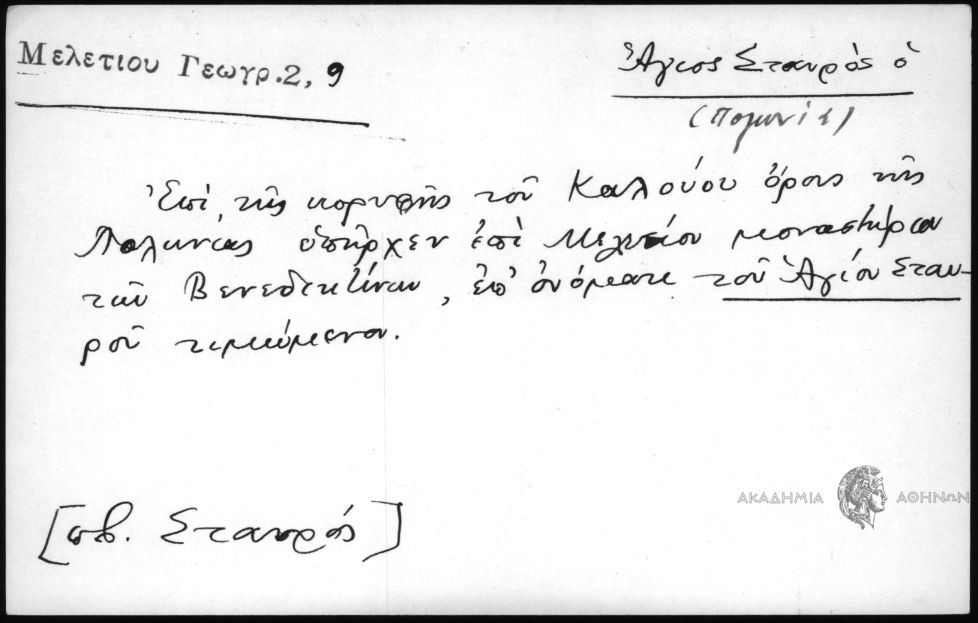 Μελετίου Γεωγρ. 2, 9
Ἅγιος Σταυρός ὁ
(Πολωνία)
Ἐπί τῆς κορυφῆς τοῦ Καλούου ὄρους τῆς
Πολωνίας ὑπῆρχεν ἐπὶ Μελετίου μοναστήριον
τῶν Βενεδικτίνων, ἐπ' ὀνόματι τοῦ Ἁγίου Σταυ-
ροῦ τιμώμενον.
[πβ. Σταυρός]
ΑΚΑΔΗΜΙΑ ΑΘΗΝΩΝ